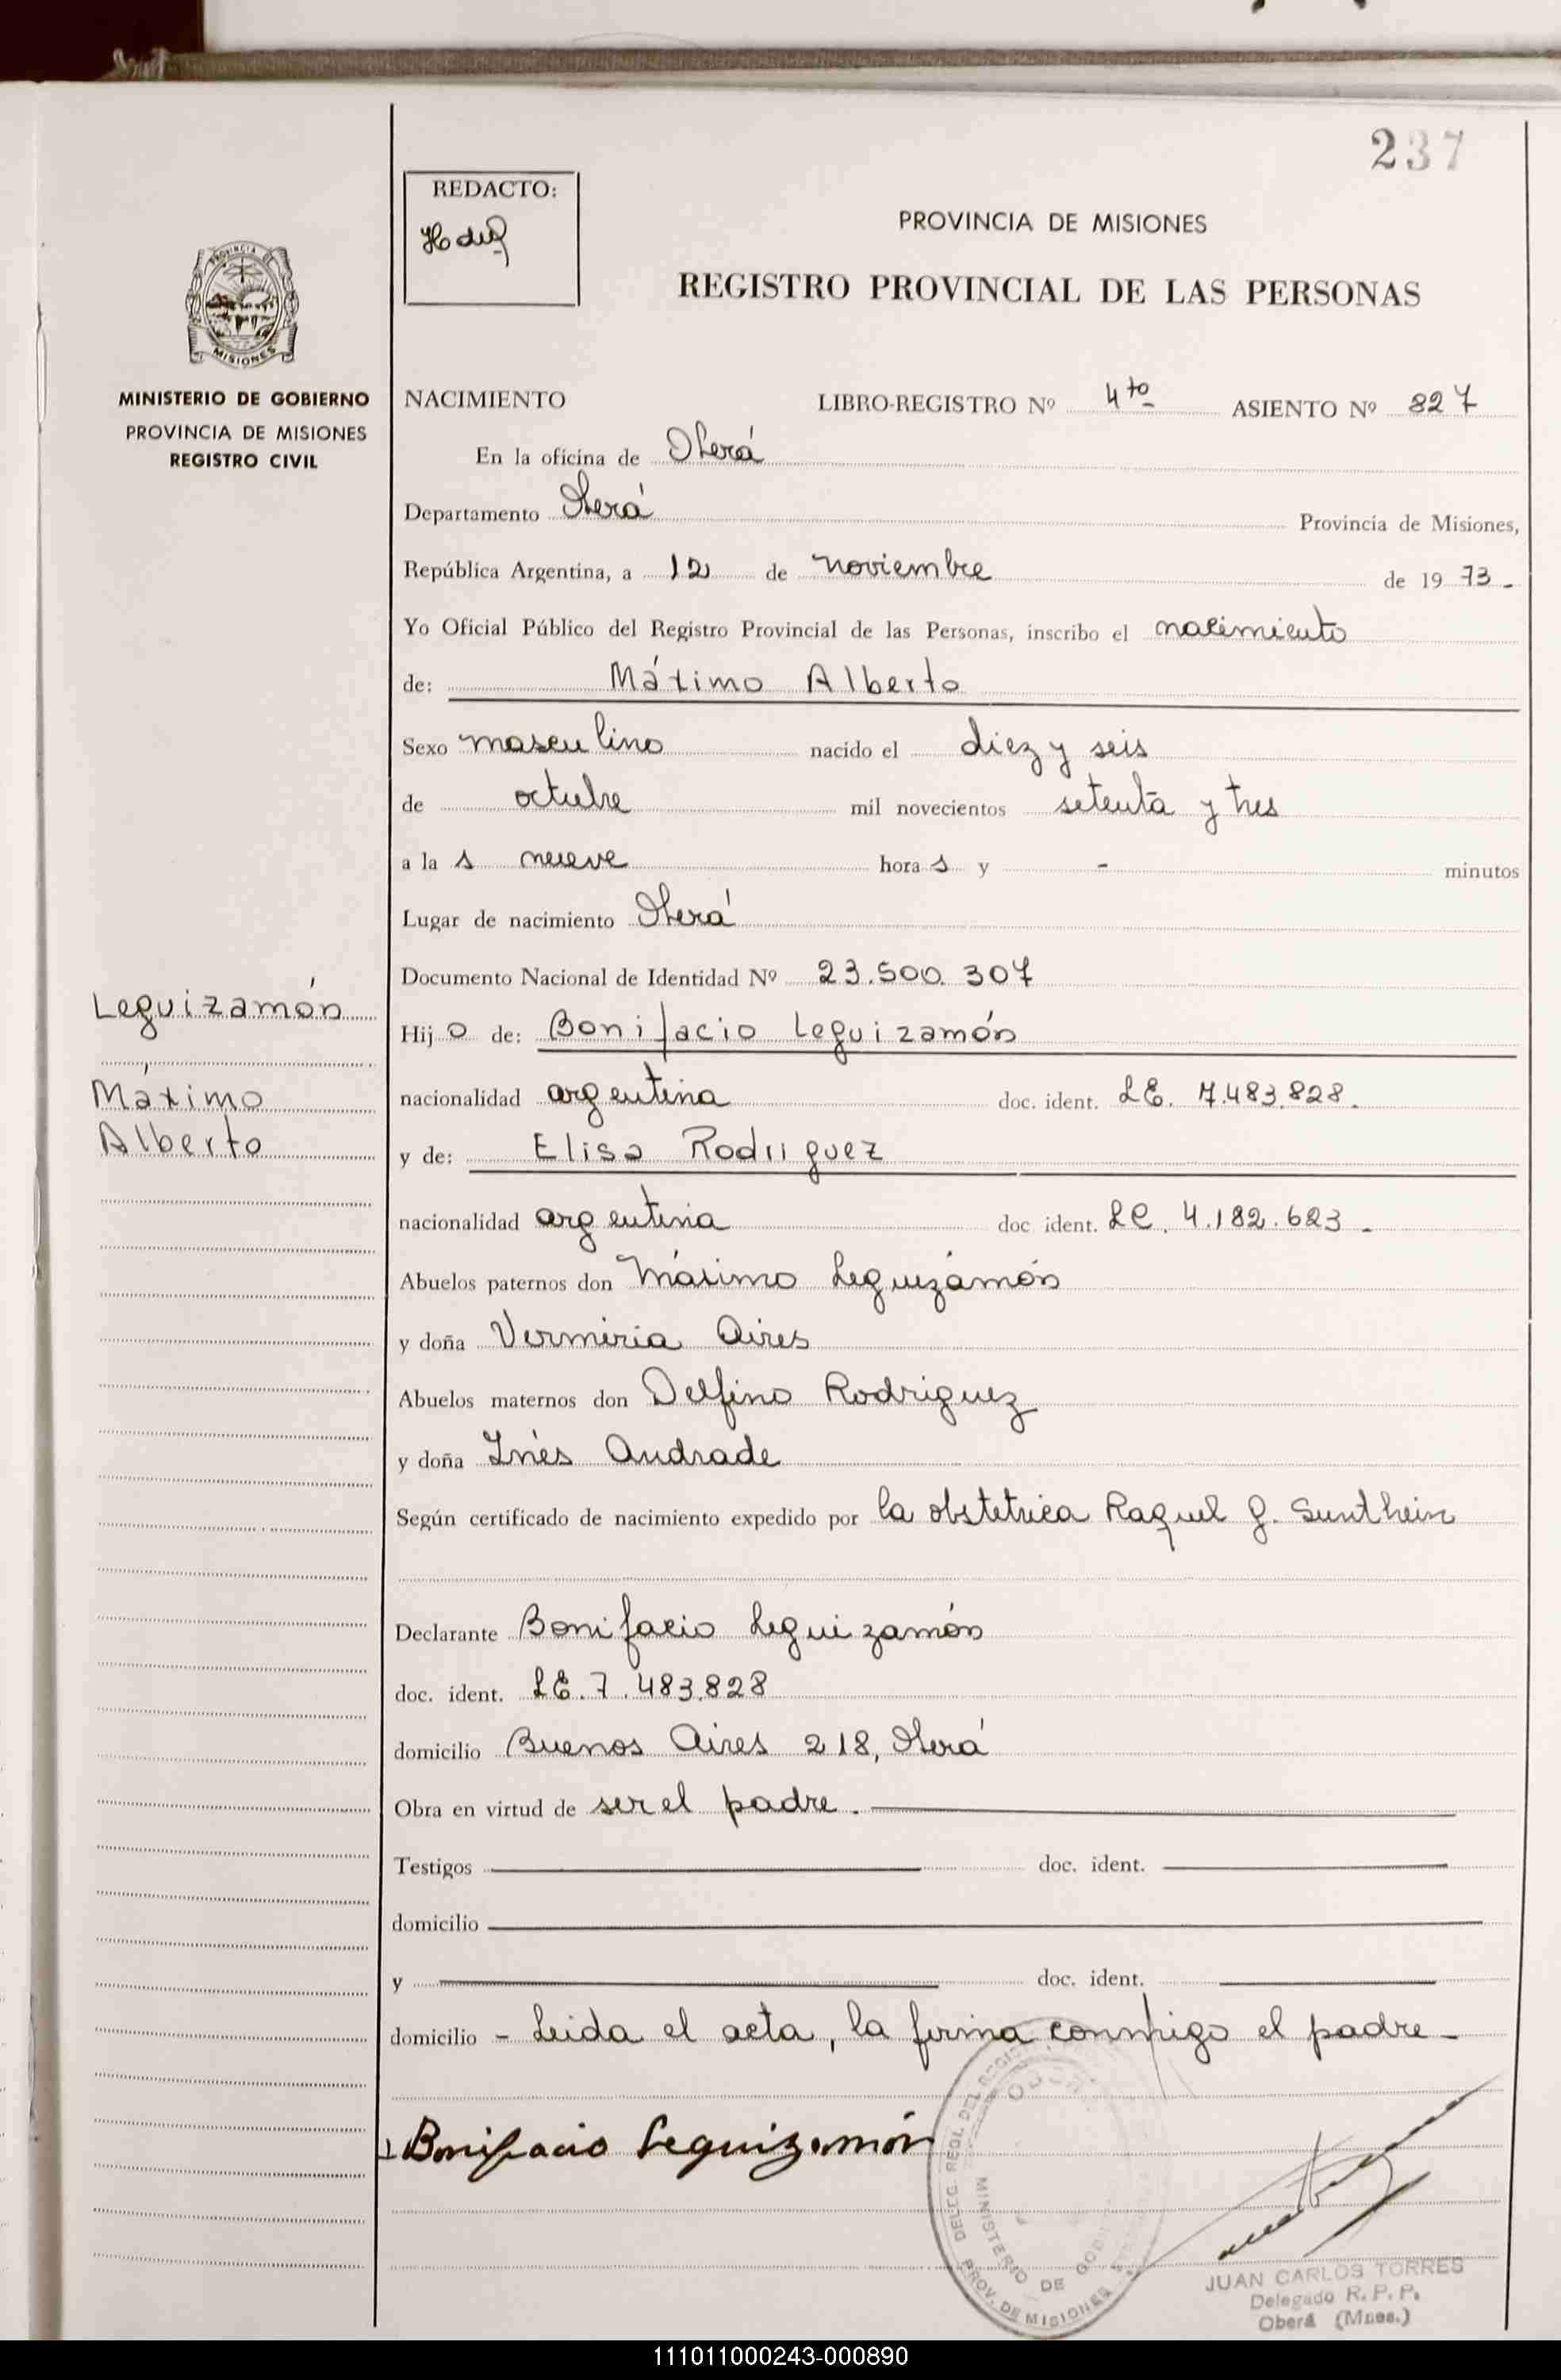 237
REDACTO:
PROVINCIA DE MISIONES
REGISTRO PROVINCIAL DE LAS PERSONAS
MISIONES
MINISTERIO DE GOBIERNO
PROVINCIA DE MISIONES
REGISTRO CIVIL
NACIMIENTO LIBRO-REGISTRO Nº 4to ASIENTO Nº 827
En la oficina de Oberá
Departamento Oberá Provincia de Misiones,
República Argentina, a 12 de noviembre de 1973.-
Yo Oficial Público del Registro Provincial de las Personas, inscribo el nacimiento
de: Máximo Alberto
Sexo masculino nacido el diez y seis
de octubre mil novecientos setenta y tres
a la s nueve hora s y - minutos
Lugar de nacimiento Oberá
Documento Nacional de Identidad Nº 23.500.307
Leguizamón
Máximo
Alberto
Hij o de: Bonifacio Leguizamón
nacionalidad argentina doc. ident. LE. 7.483.828.
y de: Elisa Rodriguez
nacionalidad argentina doc ident. LC. 4.182.623.-
Abuelos paternos don Máximo Leguizámón
y doña Verminia Aires
Abuelos maternos don Delfino Rodriguez
y doña Inés Andrade
Según certificado de nacimiento expedido por la obstetrica Raquel G. Sunthein
Declarante Bonifacio Leguizamón
doc. ident. LE. 7.483.828
domicilio Buenos Aires 218, Oberá
Obra en virtud de ser el padre.
Testigos doc. ident.
domicilio
y doc. ident.
domicilio - Leida el acta, la firma conmigo el padre-
Bonifacio Leguizamón
DELEG. REGL. DEL
MINISTERIO DE GOB
PROV. DE MISIONES
JUAN CARLOS TORRES
Delegado R. P. P.
Oberá (Mnes.)
111011000243-000890